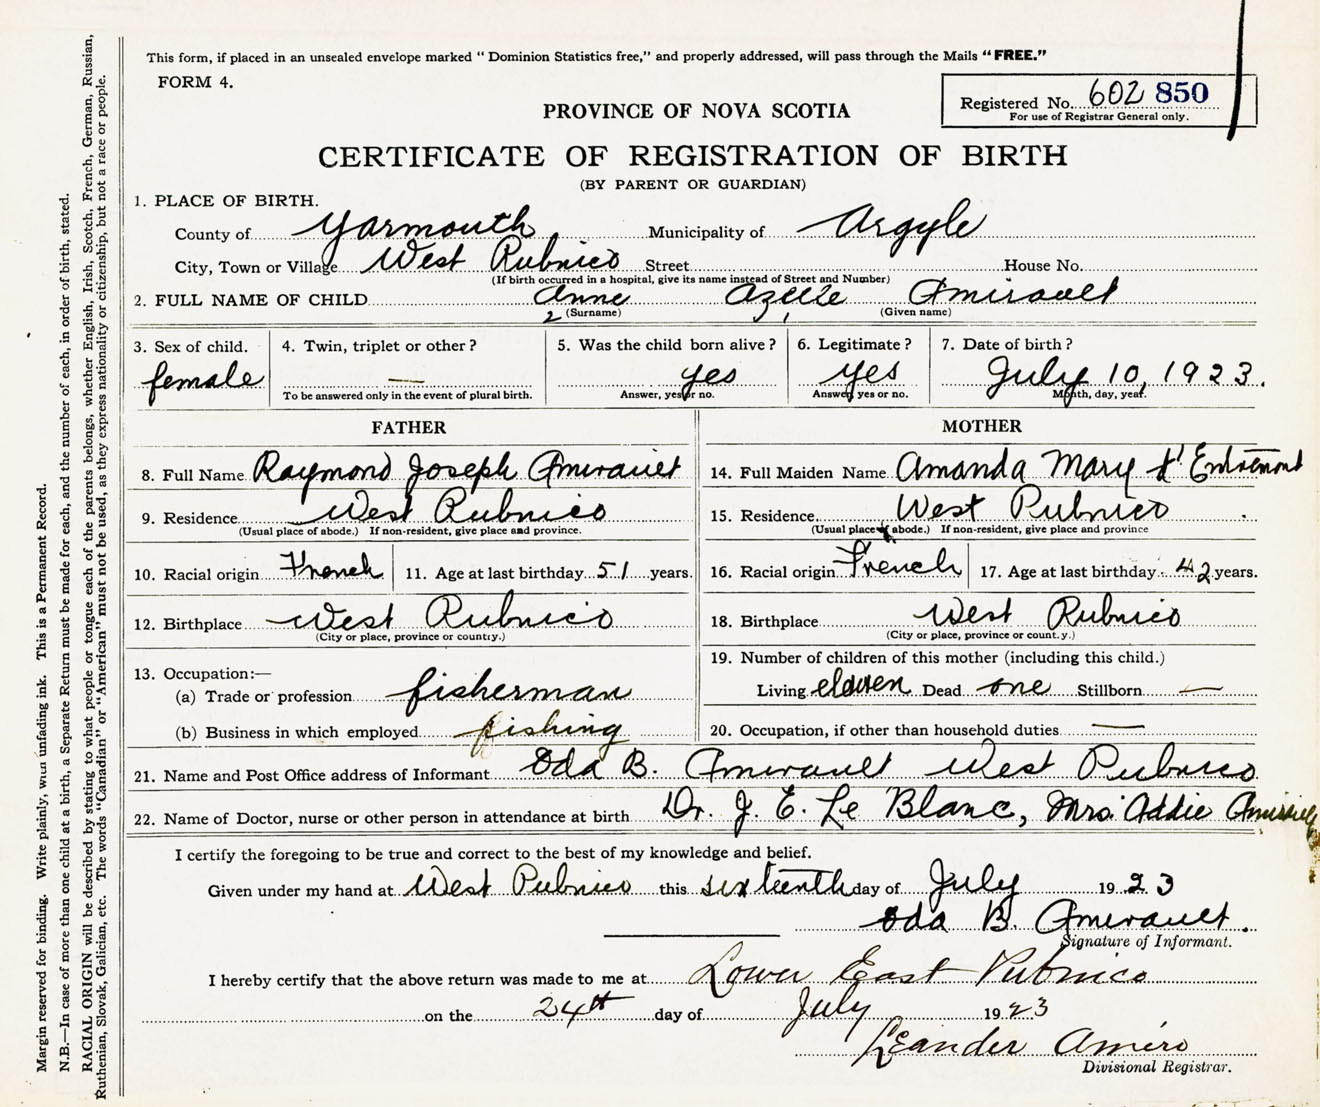 This form, if placed in an unsealed envelope marked "Dominion Statistics free," and properly addressed, will pass through the Mails "FREE."
FORM 4.
Registered No. 602 850
For use of Registrar General only.
PROVINCE OF NOVA SCOTIA
CERTIFICATE OF REGISTRATION OF BIRTH
(BY PARENT OR GUARDIAN)
1. PLACE OF BIRTH.
County of Yarmouth Municipality of Argyle
City, Town or Village West Pubnico Street House No.
(If birth occurred in a hospital, give its name instead of Street and Number)
2. FULL NAME OF CHILD Anne Azelie Amirault
2 (Surname) 1 (Given name)
3. Sex of child. female
4. Twin, triplet or other? —
To be answered only in the event of plural birth.
5. Was the child born alive? yes
Answer, yes or no.
6. Legitimate? yes
Answer, yes or no.
7. Date of birth? July 10, 1923.
Month, day, year.
FATHER
8. Full Name Raymond Joseph Amirault
9. Residence West Pubnico
(Usual place of abode.) If non-resident, give place and province.
10. Racial origin French 11. Age at last birthday 51 years.
12. Birthplace West Pubnico
(City or place, province or country.)
13. Occupation:—
(a) Trade or profession fisherman
(b) Business in which employed fishing
MOTHER
14. Full Maiden Name Amanda Mary d'Entremont
15. Residence West Pubnico
(Usual place of abode.) If non-resident, give place and province
16. Racial origin French 17. Age at last birthday 42 years.
18. Birthplace West Pubnico
(City or place, province or count.y.)
19. Number of children of this mother (including this child.)
Living eleven Dead one Stillborn —
20. Occupation, if other than household duties —
21. Name and Post Office address of Informant Oda B. Amirault West Pubnico
22. Name of Doctor, nurse or other person in attendance at birth Dr. J. E. Le Blanc, Mrs. Addie
I certify the foregoing to be true and correct to the best of my knowledge and belief.
Given under my hand at West Pubnico this sixteenth day of July 1923
Oda B. Amirault.
Signature of Informant.
I hereby certify that the above return was made to me at Lower East Pubnico
on the 24th day of July 1923
Leander Amiro
Divisional Registrar.
Margin reserved for binding. Write plainly, with unfading ink. This is a Permanent Record.
N.B.—In case of more than one child at a birth, a Separate Return must be made for each, and the number of each, in order of birth, stated.
RACIAL ORIGIN will be described by stating to what people or tongue each of the parents belongs, whether English, Irish, Scotch, French, German, Russian,
Ruthenian, Slovak, Galician, etc. The words "Canadian" or "American" must not be used, as they express nationality or citizenship, but not a race or people.